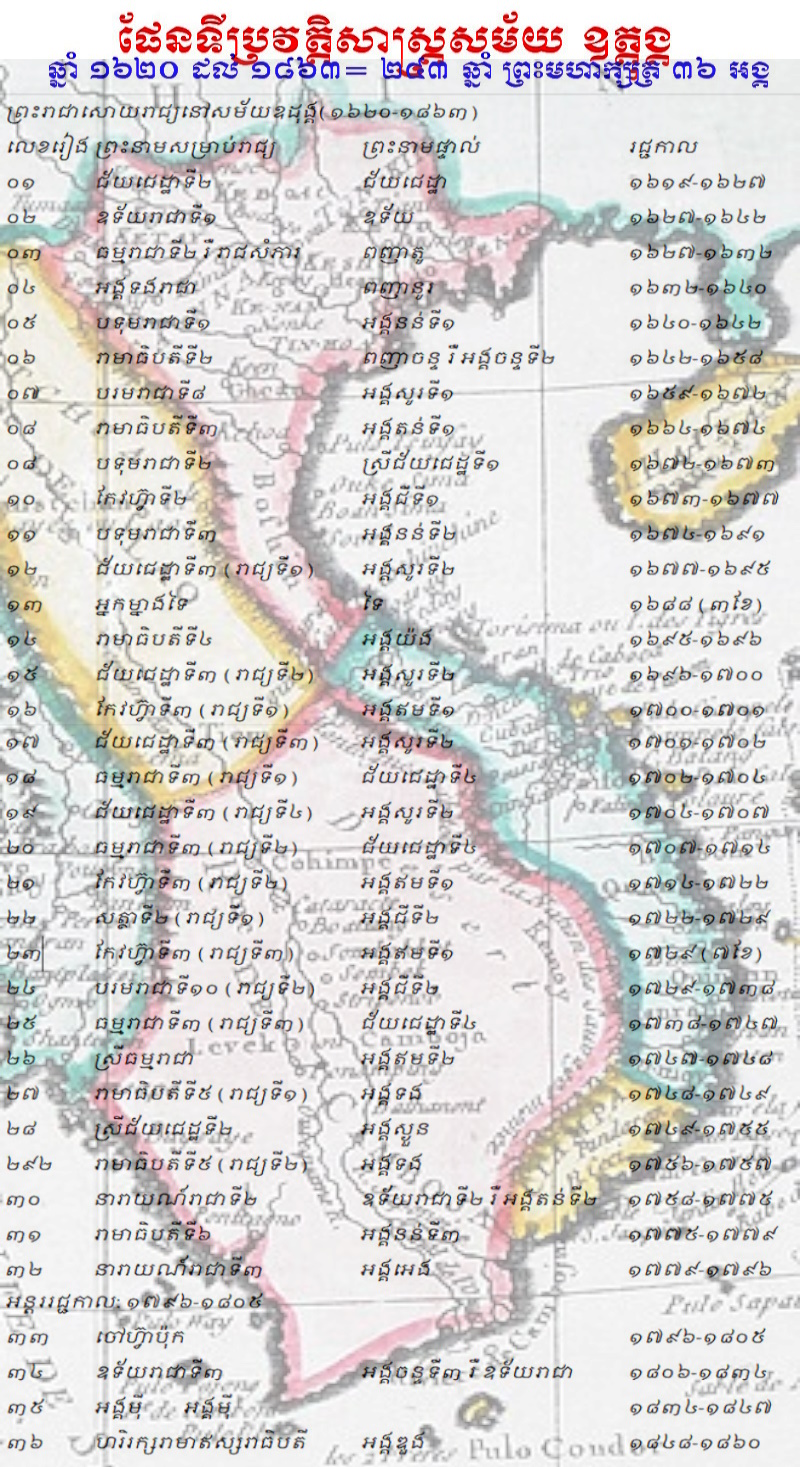 ផែនទីប្រវត្តិសាស្ត្រសម័យ ឧត្តុង្គ
ឆ្នាំ ១៦២០ ដល់ ១៨៦៣= ២៤៣ ឆ្នាំ ព្រះមហាក្សត្រ ៣៦ អង្គ
ព្រះរាជាសោយរាជ្យនៅសម័យឧដុង្គ(១៦២០-១៨៦៣)
លេខរៀង ព្រះនាមសម្រាប់រាជ្យ ព្រះនាមផ្ទាល់ រជ្ជកាល
០១ ជ័យជេដ្ឋាទី២ ជ័យជេដ្ឋា ១៦១៩-១៦២៧
០២ ឧទ័យរាជាទី១ ឧទ័យ ១៦២៧-១៦៤២
០៣ ធម្មរាជាទី២ រឺ រាជសំភារ ពញាតូ ១៦២៧-១៦៣២
០៤ អង្គទងរាជា ពញានូរ ១៦៣២-១៦៤០
០៥ បទុមរាជាទី១ អង្គនន់ទី១ ១៦៤០-១៦៤២
០៦ រាមាធិបតីទី២ ពញាចន្ទ រឺ អង្គចន្ទទី២ ១៦៤២-១៦៥៨
០៧ បរមរាជាទី៨ អង្គសូរទី១ ១៦៥៩-១៦៧២
០៨ រាមាធិបតីទី៣ អង្គតន់ទី១ ១៦៦៤-១៦៧៤
០៨ បទុមរាជាទី២ ស្រីជ័យជេដ្ឋទី១ ១៦៧២-១៦៧៣
១០ កែវហ៊្វាទី២ អង្គជីទី១ ១៦៧៣-១៦៧៧
១១ បទុមរាជាទី៣ អង្គនន់ទី២ ១៦៧៤-១៦៩១
១២ ជ័យជេដ្ឋាទី៣ (រាជ្យទី១) អង្គសូរទី២ ១៦៧៧-១៦៩៥
១៣ អ្នកម្នាងទៃ ទៃ ១៦៨៨ (៣ខែ)
១៤ រាមាធិបតីទី៤ អង្គយ៉ង ១៦៩៥-១៦៩៦
១៥ ជ័យជេដ្ឋាទី៣ (រាជ្យទី២) អង្គសូរទី២ ១៦៩៦-១៧០០
១៦ កែវហ៊្វាទី៣ (រាជ្យទី១) អង្គឥមទី១ ១៧០០-១៧០១
១៧ ជ័យជេដ្ឋាទី៣ (រាជ្យទី៣) អង្គសូរទី២ ១៧០១-១៧០២
១៨ ធម្មរាជាទី៣ (រាជ្យទី១) ជ័យជេដ្ឋាទី៤ ១៧០២-១៧០៤
១៩ ជ័យជេដ្ឋាទី៣ (រាជ្យទី៤) អង្គសូរទី២ ១៧០៤-១៧០៧
២០ ធម្មរាជាទី៣ (រាជ្យទី២) ជ័យជេដ្ឋាទី៤ ១៧០៧-១៧១៤
២១ កែវហ៊្វាទី៣ (រាជ្យទី២) អង្គឥមទី១ ១៧១៤-១៧២២
២២ សត្ថាទី២ (រាជ្យទី១) អង្គជីទី២ ១៧២២-១៧២៩
២៣ កែវហ៊្វាទី៣ (រាជ្យទី៣) អង្គឥមទី១ ១៧២៩ (៧ខែ)
២៤ បរមរាជាទី១០ (រាជ្យទី២) អង្គជីទី២ ១៧២៩-១៧៣៨
២៥ ធម្មរាជាទី៣ (រាជ្យទី៣) ជ័យជេដ្ឋាទី៤ ១៧៣៨-១៧៤៧
២៦ ស្រីធម្មរាជា អង្គឥមទី២ ១៧៤៧-១៧៤៨
២៧ រាមាធិបតីទី៥ (រាជ្យទី១) អង្គទង ១៧៤៨-១៧៤៩
២៨ ស្រីជ័យជេដ្ឋទី២ អង្គស្ងួន ១៧៤៩-១៧៥៥
២៩២ រាមាធិបតីទី៥ (រាជ្យទី២) អង្គទង ១៧៥៦-១៧៥៧
៣០ នារាយណ៍រាជាទី២ ឧទ័យរាជាទី២ រឺ អង្គតន់ទី២ ១៧៥៨-១៧៧៥
៣១ រាមាធិបតីទី៦ អង្គនន់ទី៣ ១៧៧៥-១៧៧៩
៣២ នារាយណ៍រាជាទី៣ អង្គអេង ១៧៧៩-១៧៩៦
អន្តររជ្ជកាល: ១៧៩៦-១៨០៥
៣៣ ចៅហ៊្វាប៉ុក ១៧៩៦-១៨០៥
៣៤ ឧទ័យរាជាទី៣ អង្គចន្ទទី៣ រឺ ឧទ័យរាជា ១៨០៦-១៨៣៤
៣៥ អង្គម៉ី អង្គម៉ី ១៨៣៤-១៨៤៧
៣៦ ហរិរក្សរាមាឥស្សរាធិបតី អង្គឌួង ១៨៤៨-១៨៦០
Pulo Condor